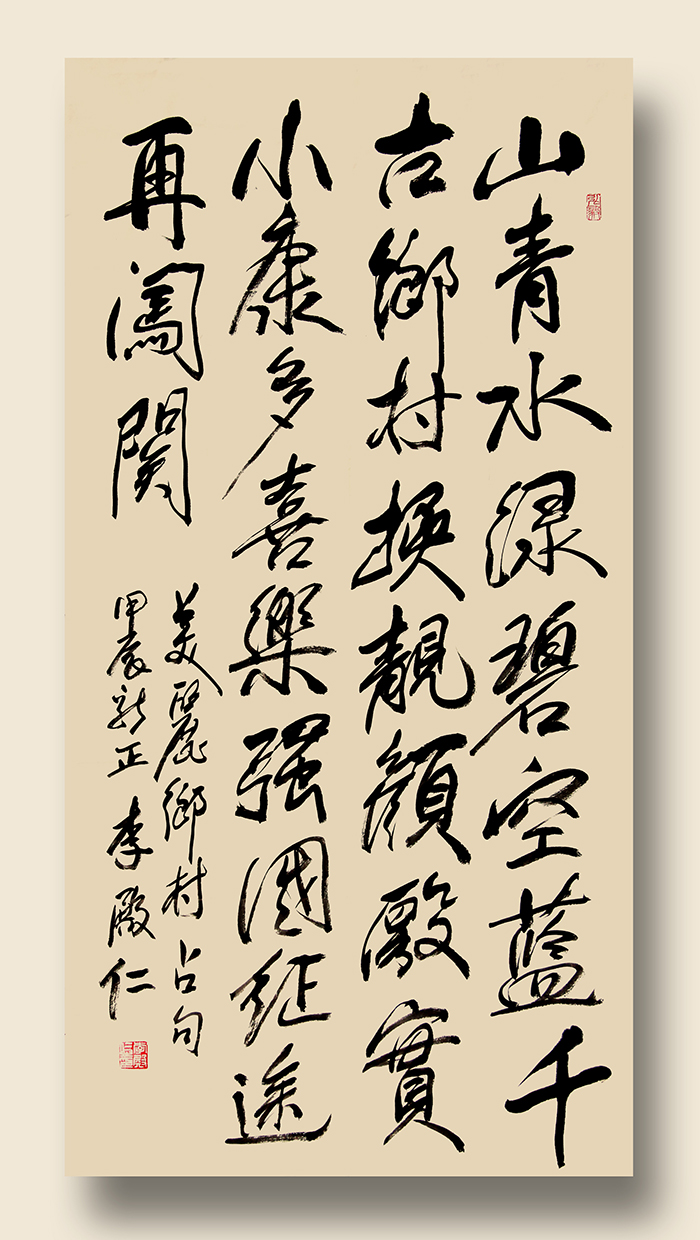 山青水绿碧空藍千
古鄉村換靚顔殷實
小康多喜樂强國征途
再闖関
美麗鄉村占句
甲辰新正 李殿仁